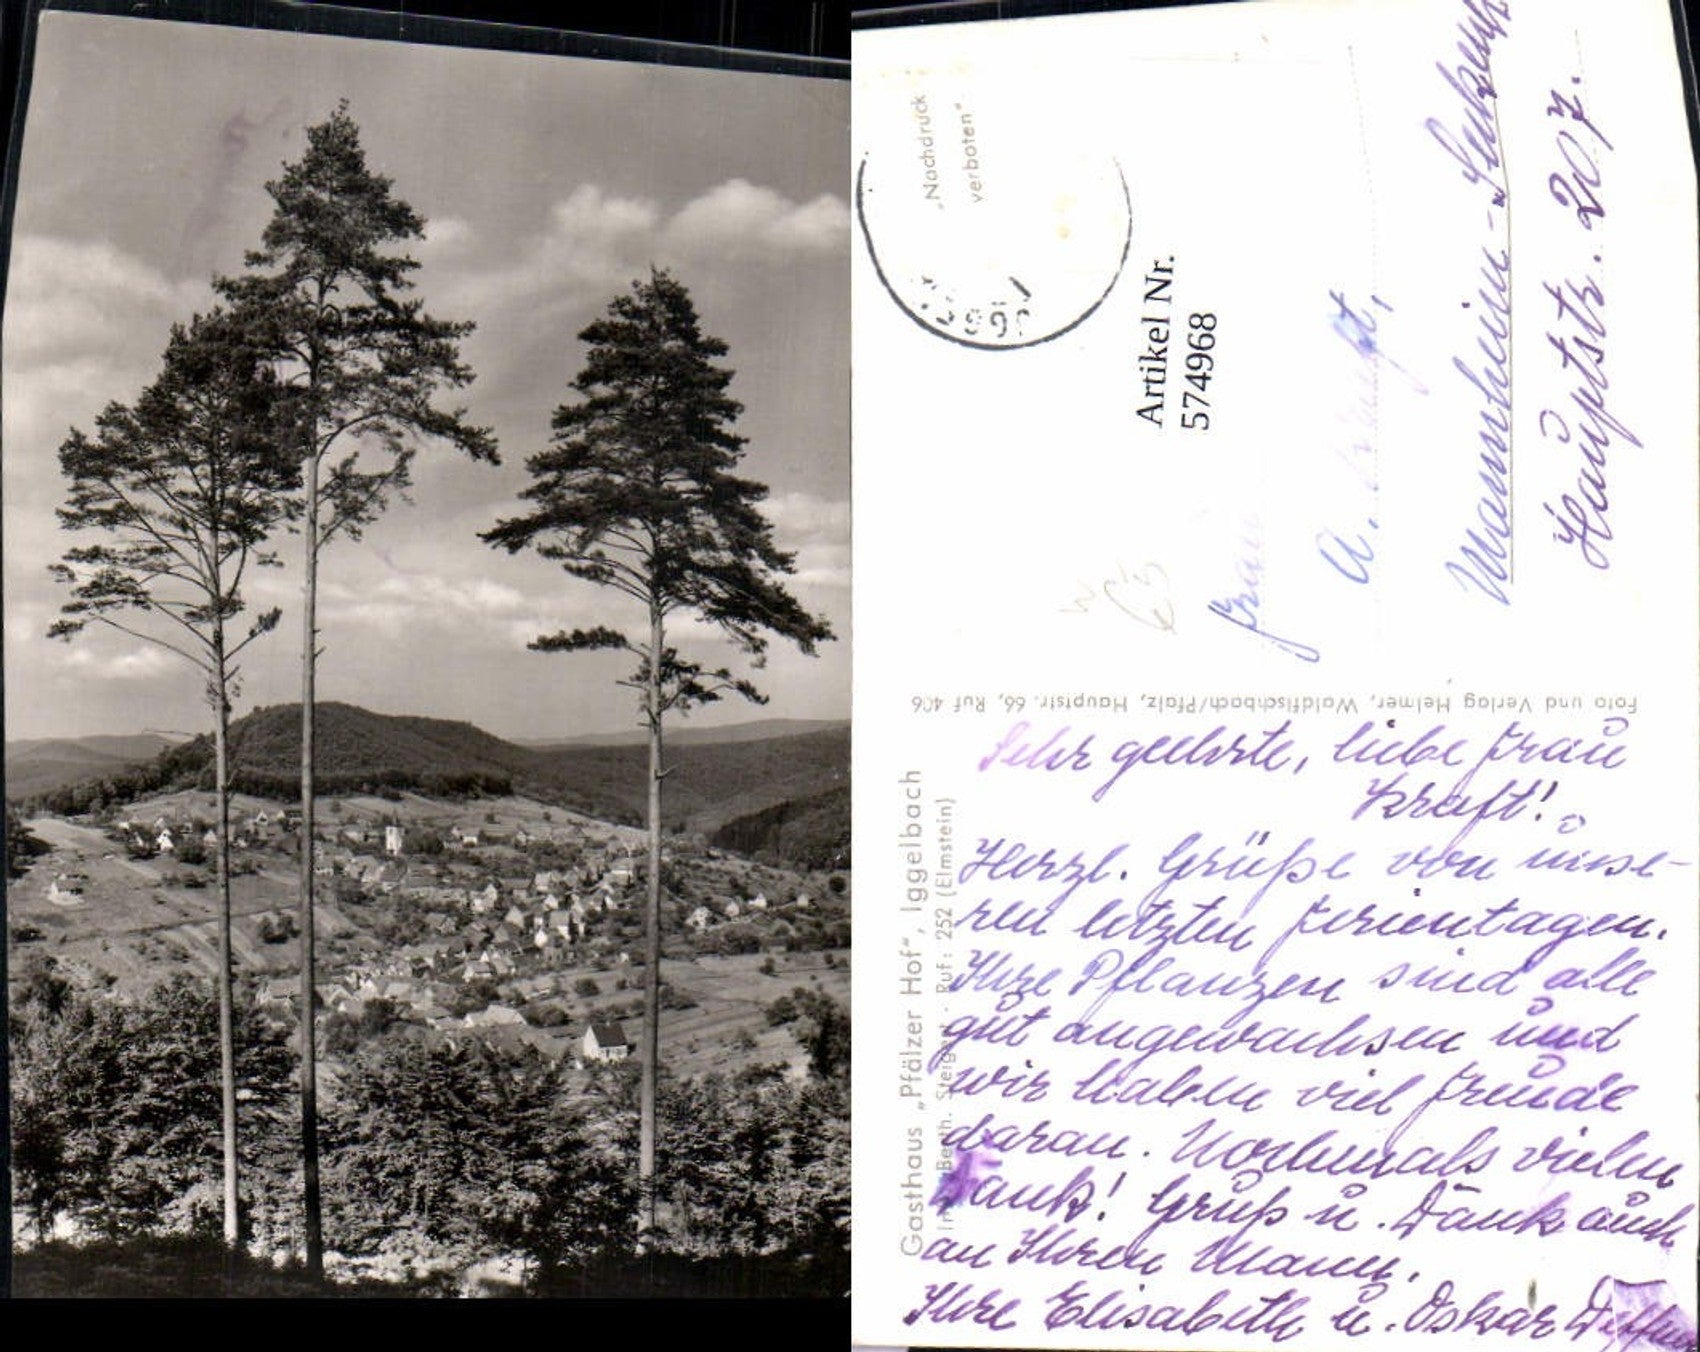 „Nachdruck
verboten"
Artikel Nr.
574968
Frau
A. Kraft,
Mannheim-
Hauptstr. 207.
Foto und Verlag Helmer, Waldfischbach/Pfalz, Hauptstr. 66, Ruf 406
Gasthaus „Pfälzer Hof", Iggelbach
Inh. Berth. Steiger · Ruf: 252 (Elmstein)
Sehr geehrte, liebe Frau
Kraft!
Herzl. Grüße von unse-
ren letzten Ferientagen.
Ihre Pflanzen sind alle
gut angewachsen und
wir haben viel Freude
daran. Nochmals vielen
Dank! Gruß u. Dank auch
an Ihren Mann.
Ihre Elisabeth u. Oskar